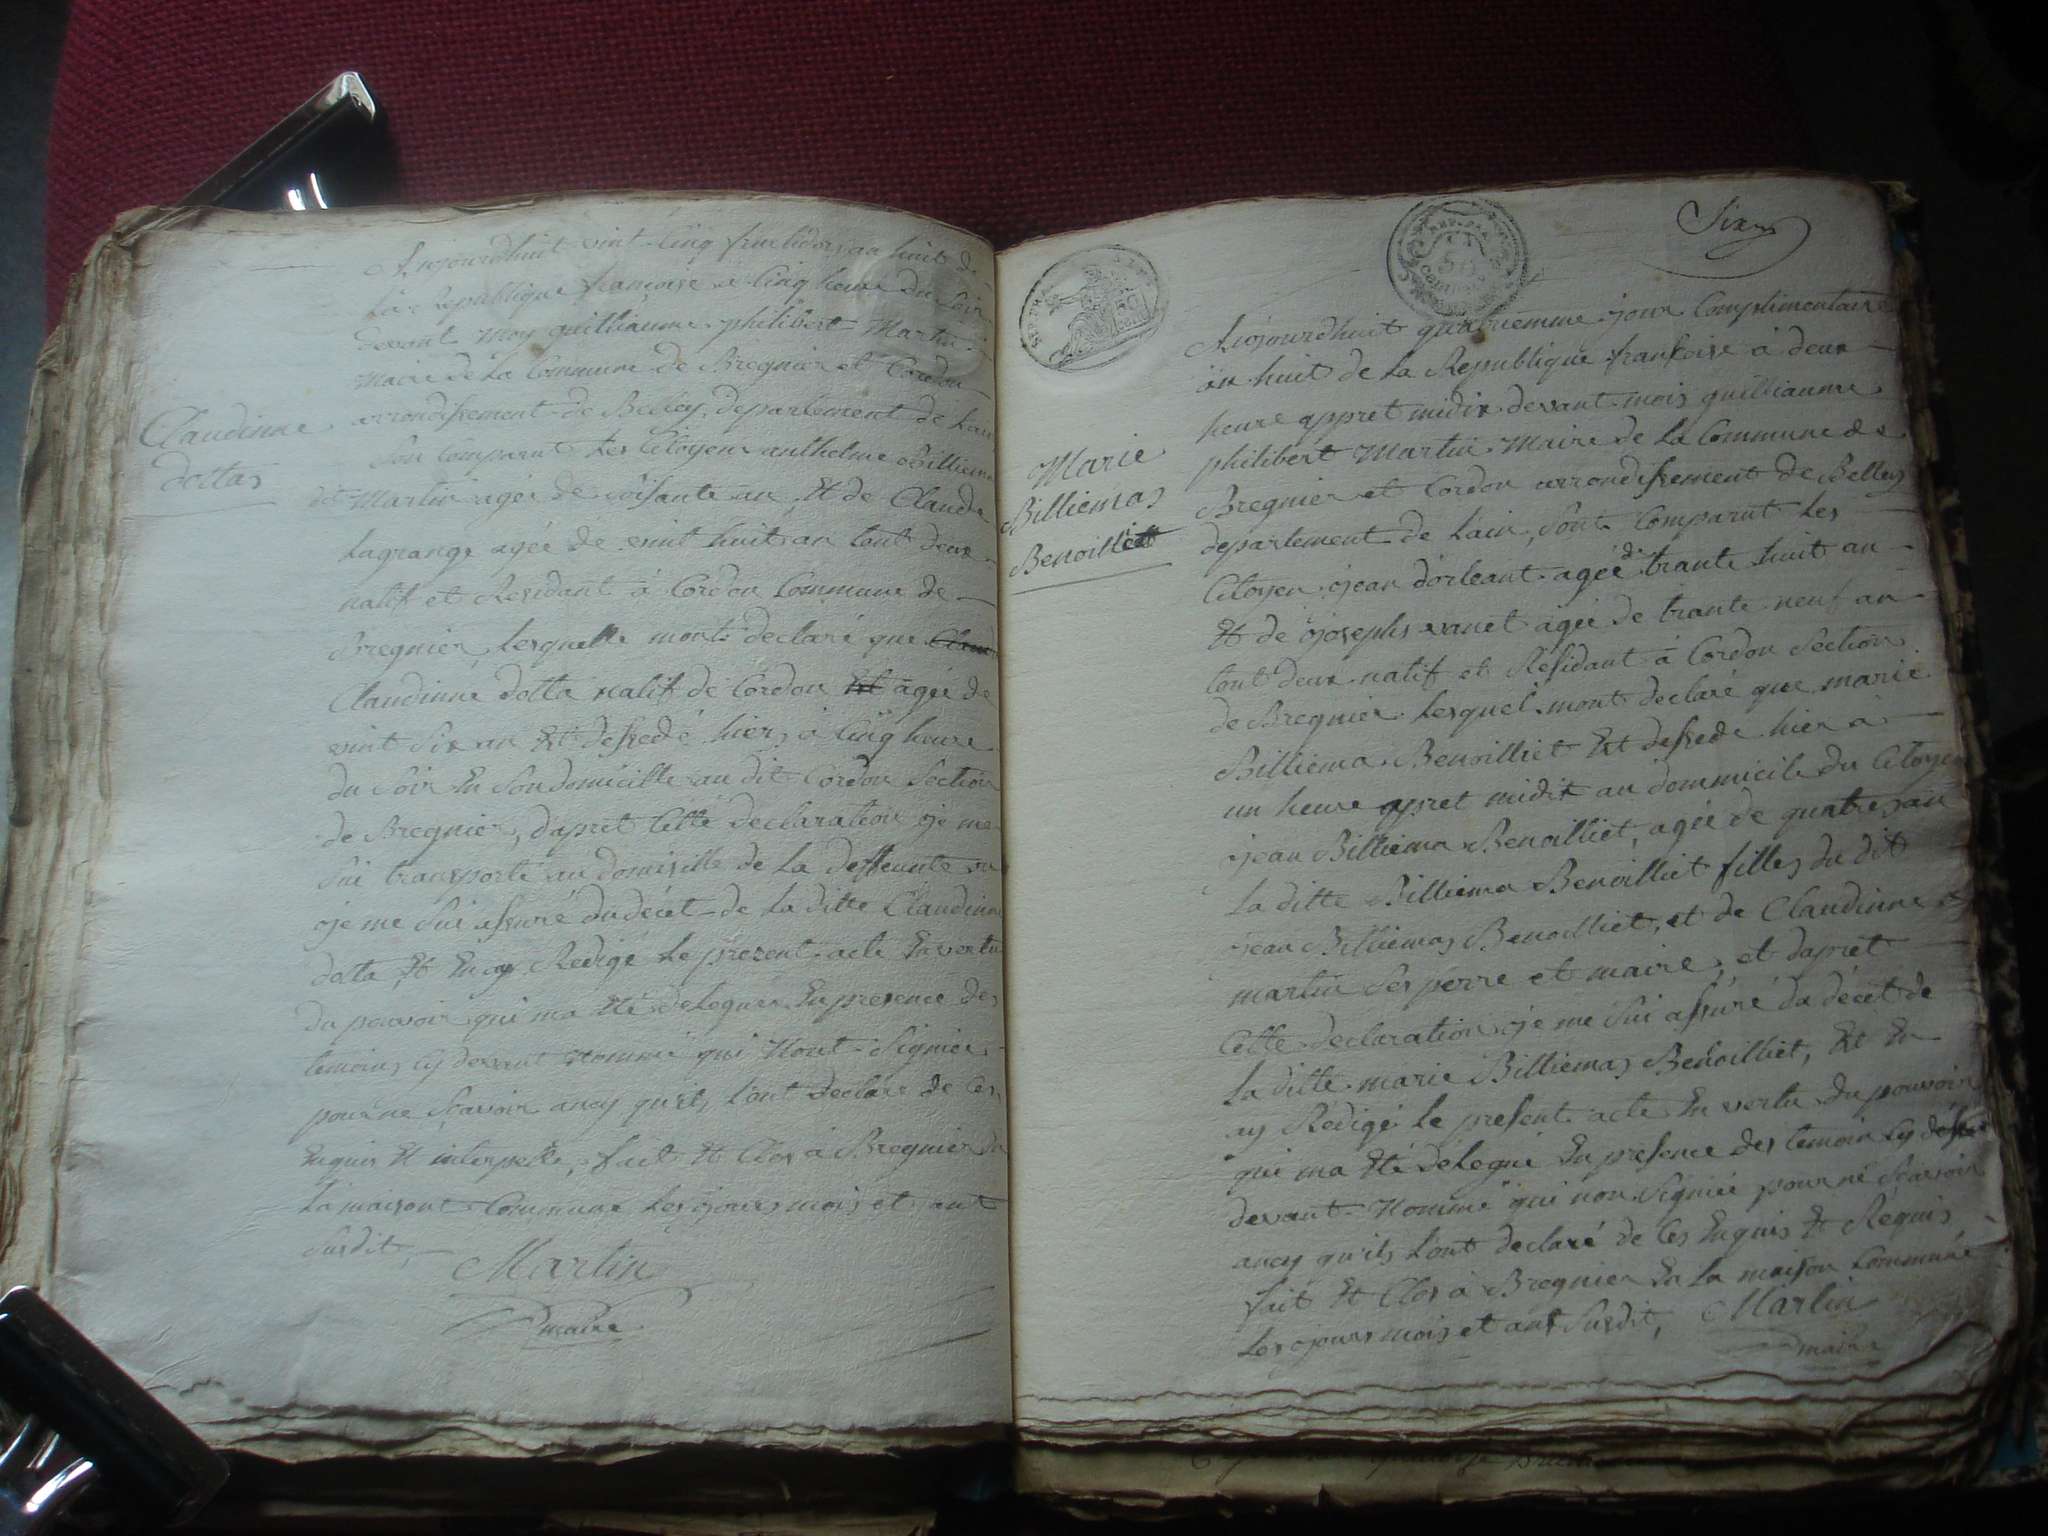 Aujourdhuit vint-cinq fruilidor an huit de
La Republique françoise a cinq heure du soir
devant moy guilliaume philibert Martin
Maire de La Commune de Bregnier et Cordon
arrondissement de Belley, departement de Lain
Claudinne
dottas
Son Comparut Les Citoyens anthelme Billiema
dit Martin agée de soisante an, Et de Claude
Lagrange agée de vint huit an tout deux
natif et Residant à Cordon Commune de
Bregnier, Lesquelle mont declaré que Claud
Claudinne dotta natif de Cordon Et agée de
vint six an Et dessedé hier, à cinq heure
du soir En son domicille au dit Cordon Section
de Bregnier, dapret Cette declaration je me
sui transporté au domisille de La deffeunte
je me sui assuré du décet de La ditte Claudinne
dotta, Et En ay Redigé Le present acte En vertu
du pouvoir qui ma Eté deleguer En presence des
temoins cy devant nommé qui nont signier
pour ne scavoir ancy qu'ils, l'ont declaré de Ces
Enquis Et interpellé, fait Et Clos à Bregnier En
La maisont Commune Les jours mois et ant
susdit,
Martin
maire
Six
Aujourdhuit quatriemme jour Complimentaire
an huit de La Republique francoise à deux
heure appret midix devant mois guilliaume
philibert Martin Maire de La Commune de
Bregnier et Cordon arrondissement de Belley
departement de Lain, sont Comparut Les
Marie
Billiemas
Benoilliet
Citoyen jean dorleant agée de trante huit an
Et de josephs vanet agée de trante neuf an
tout deux natif et Residant à Cordon Section
de Bregnier Lesquel mont declaré que marie
Billiema Benoilliet Est dessede hier a
un heure apret midix au dommicile du Citoyen
jean Billiema Benoilliet, agée de quatre, an
La ditte Billiema Benoilliet filles du dit
jean Billiemas Benoilliet, et de Claudinne
martin ses perre et maire, et dapret
Cette declaration je me sui assuré du décet de
La ditte marie Billiemas Benoilliet, Et En
ay Redigé Le present acte En vertu du pouvoir
qui ma Eté delegué En presence des temoin cy
devant nommé qui non signiée pour ne scavoir
ancy qu'ils l'ont declaré de Ces Enquis Et Requis
fait Et Clos à Bregnier En La maison Commune
Les jours mois et ant susdit, Martin
maire